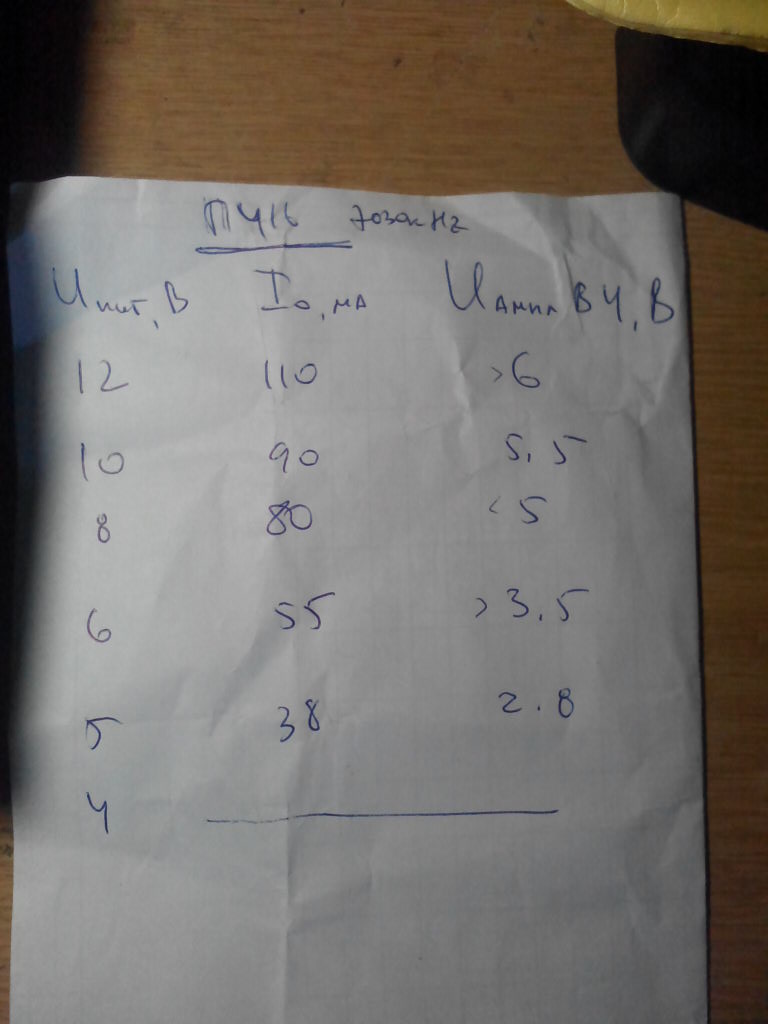 П416 7030кHz
Uпит, В I0, мА Uампл ВЧ, В
12 110 >6
10 90 5,5
8 80 <5
6 55 >3,5
5 38 2.8
4